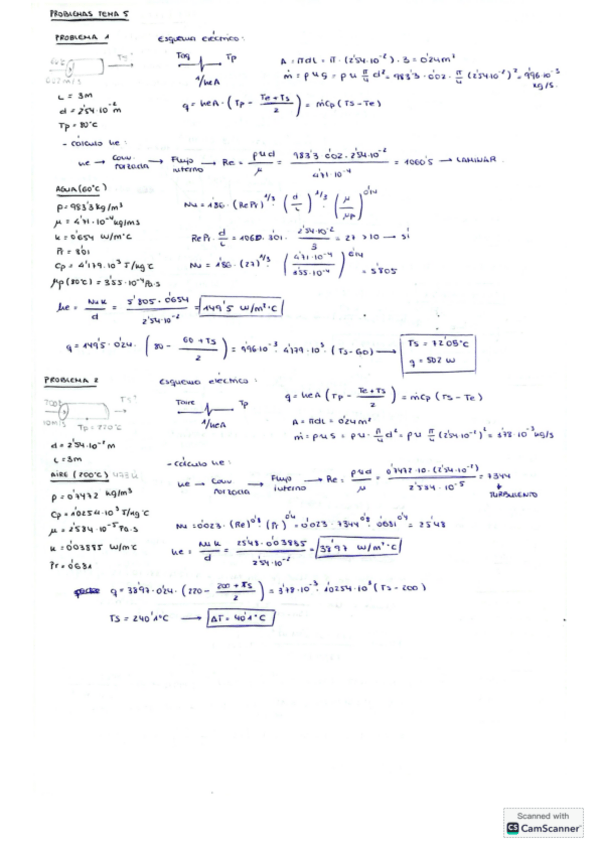 PROBLEMAS TEMA 5
PROBLEMA 1
Esquema eléctrico:
L = 3m
d = 2'54·10⁻² m
Tp = 80°C
Taq Tp
1/heA
A = πdL = π·(2'54·10⁻²)·3 = 0'24m²
ṁ = ρuS = ρu π/4 d² = 983'3·0'02·π/4 (2'54·10⁻²)² = 9'96·10⁻³ kg/s.
q = heA·(Tp - (Te+Ts)/2) = ṁCp (Ts-Te)
- cálculo he:
he → Conv. forzada → Flujo interno → Re = ρud/μ = 983'3·0'02·2'54·10⁻²/4'71·10⁻⁴ = 1060'5 → LAMINAR
AGUA (60°C)
ρ = 983'3 kg/m³
μ = 4'71·10⁻⁴ kg/ms
k = 0'654 W/m°C
Pr = 3'01
Cp = 4'179·10³ J/kg°C
μp (80°C) = 3'55·10⁻⁴ Pa·s
Nu = 1'86·(RePr)^1/3 (d/L)^1/3 (μ/μp)^0'14
RePr·d/L = 1060·3'01·2'54·10⁻²/3 = 27 > 10 → sí
Nu = 1'86·(27)^1/3·(4'71·10⁻⁴/3'55·10⁻⁴)^0'14 = 5'805
he = Nu k/d = 5'805·0'654/2'54·10⁻² = 149'5 W/m²·°C
q = 149'5·0'24·(80 - (60+Ts)/2) = 9'96·10⁻³·4'179·10³ (Ts-60) →
Ts = 72'05°C
q = 502 W
PROBLEMA 2
Esquema eléctrico:
Tp = 220°C
d = 2'54·10⁻² m
L = 3m
Taire Tp
1/heA
q = heA (Tp - (Te+Ts)/2) = ṁCp (Ts-Te)
A = πdL = 0'24m²
ṁ = ρuS = ρu·π/4 d² = ρu π/4 (2'54·10⁻²)² = 3'78·10⁻³ kg/s
AIRE (200°C)
ρ = 0'7472 kg/m³
Cp = 1'0254·10³ J/kg°C
μ = 2'584·10⁻⁵ Pa·s
k = 0'03885 W/m°C
Pr = 0'681
- cálculo he:
he → Conv. forzada → Flujo interno → Re = ρud/μ = 0'7472·10·(2'54·10⁻²)/2'584·10⁻⁵ = 7344
TURBULENTO
Nu = 0'023·(Re)^0'8 (Pr)^0'4 = 0'023·7344^0'8·0'681^0'4 = 25'48
he = Nu k/d = 25'48·0'03885/2'54·10⁻² = 38'97 W/m²·°C
q = 38'97·0'24·(220 - (200+Ts)/2) = 3'78·10⁻³·1'0254·10³ (Ts-200)
Ts = 240'1°C → ΔT = 40'1°C
Scanned with
CS CamScanner